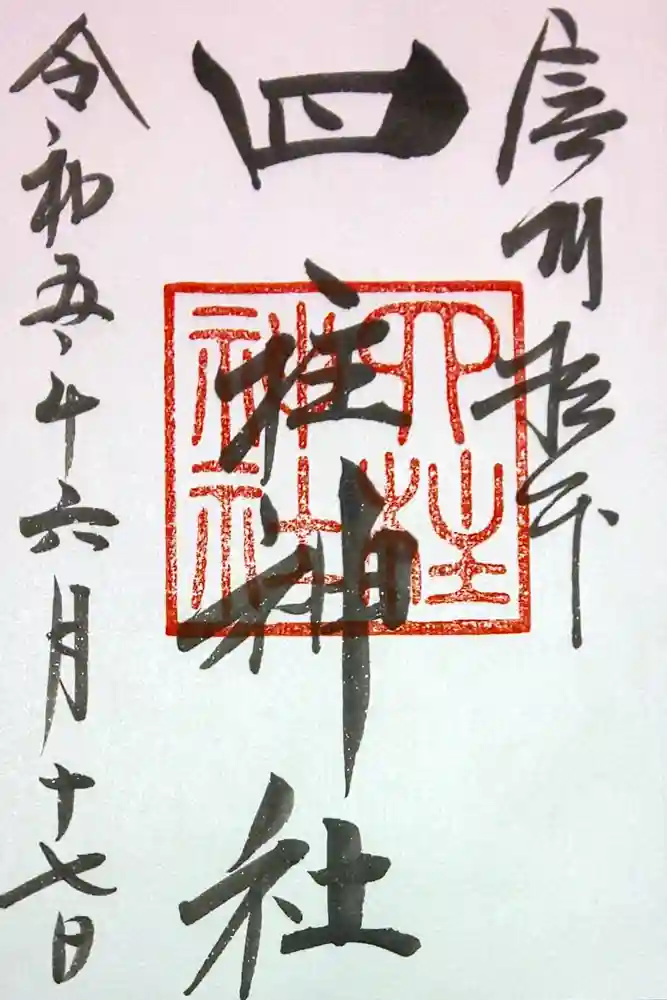 信州松本
四柱神社
四柱神社
令和五年六月十七日